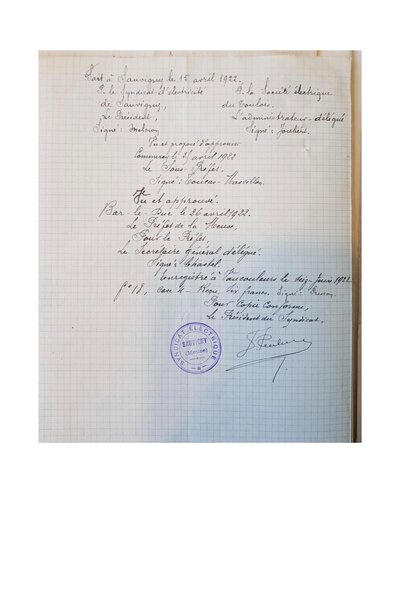 Fait à Sauvigny le 15 avril 1922.
P. le Syndicat d'électricité
de Sauvigny,
Le Président,
Signé :
P. la Société électrique
du Toulois.
L'administrateur-délégué
Signé : Joubert.
Vu et proposé d'approuver
Commercy le 25 avril 1922
Le Sous-Préfet,
Signé : Toucas-Massillon.
Vu et approuvé.
Bar-le-Duc le 26 avril 1922.
Le Préfet de la Meuse,
Pour le Préfet,
Le Secrétaire Général délégué.
Signé : Chastel.
Enregistré à Vaucouleurs le Juin 1922
f° 18, Case 4. Reçu, six francs. Signé :
Pour Copie Conforme,
Le Président du Syndicat.
SYNDICAT ÉLECTRIQUE
SAUVIGNY
(Meuse)